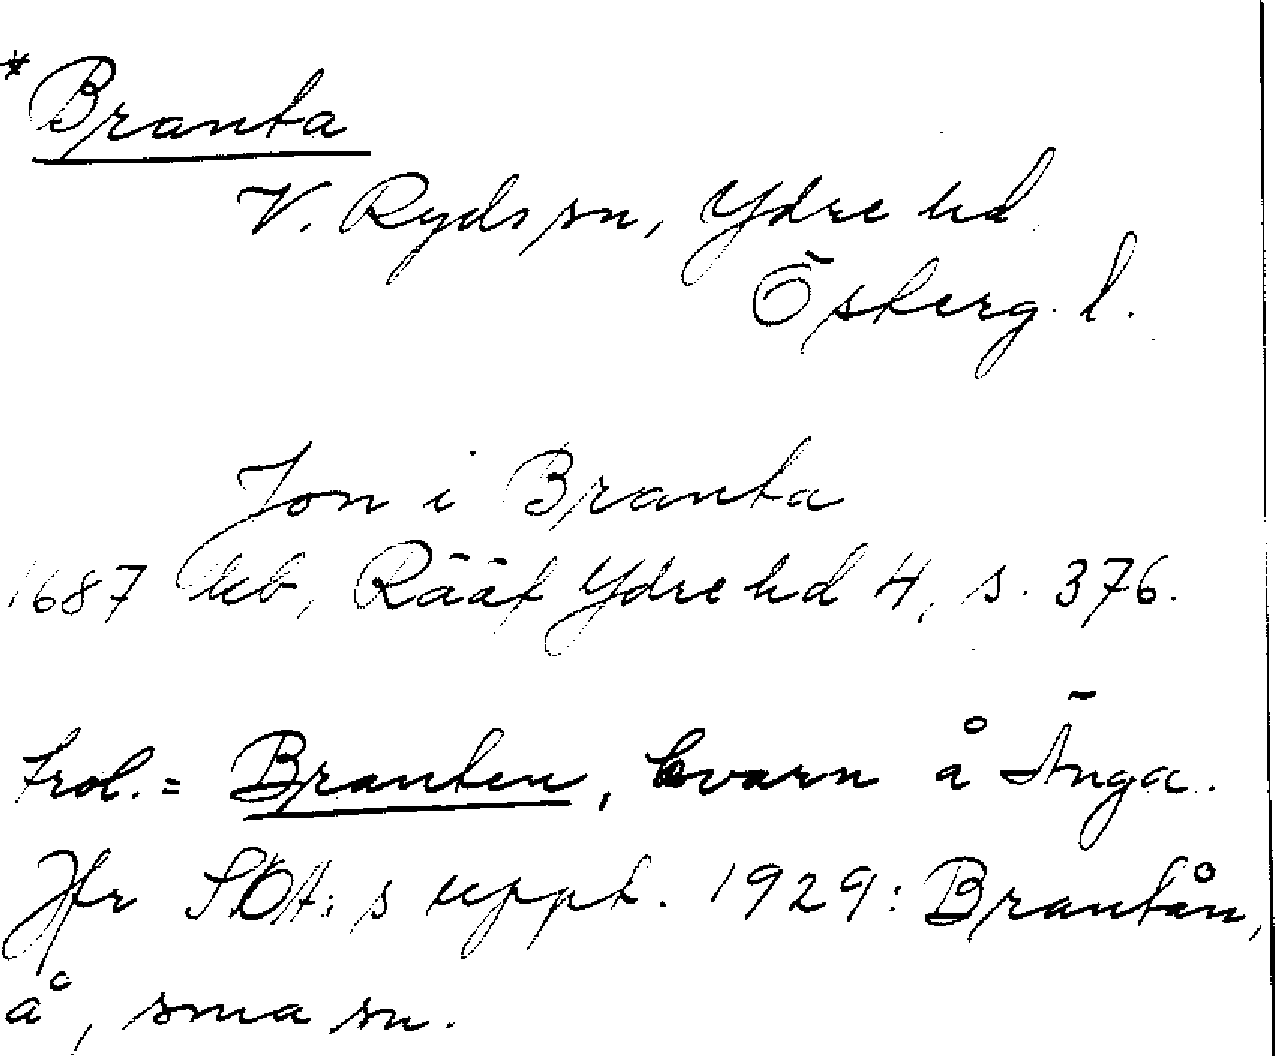 *Branta
V. Ryds sn, Ydre hd
Österg. l.
Jon i Branta
1687 kb, Rääf Ydre hd 4, s. 376.
Trol. = Branten, kvarn å Änga.
Jfr SOA:s uppt. 1929: Brantån,
å, sma sn.